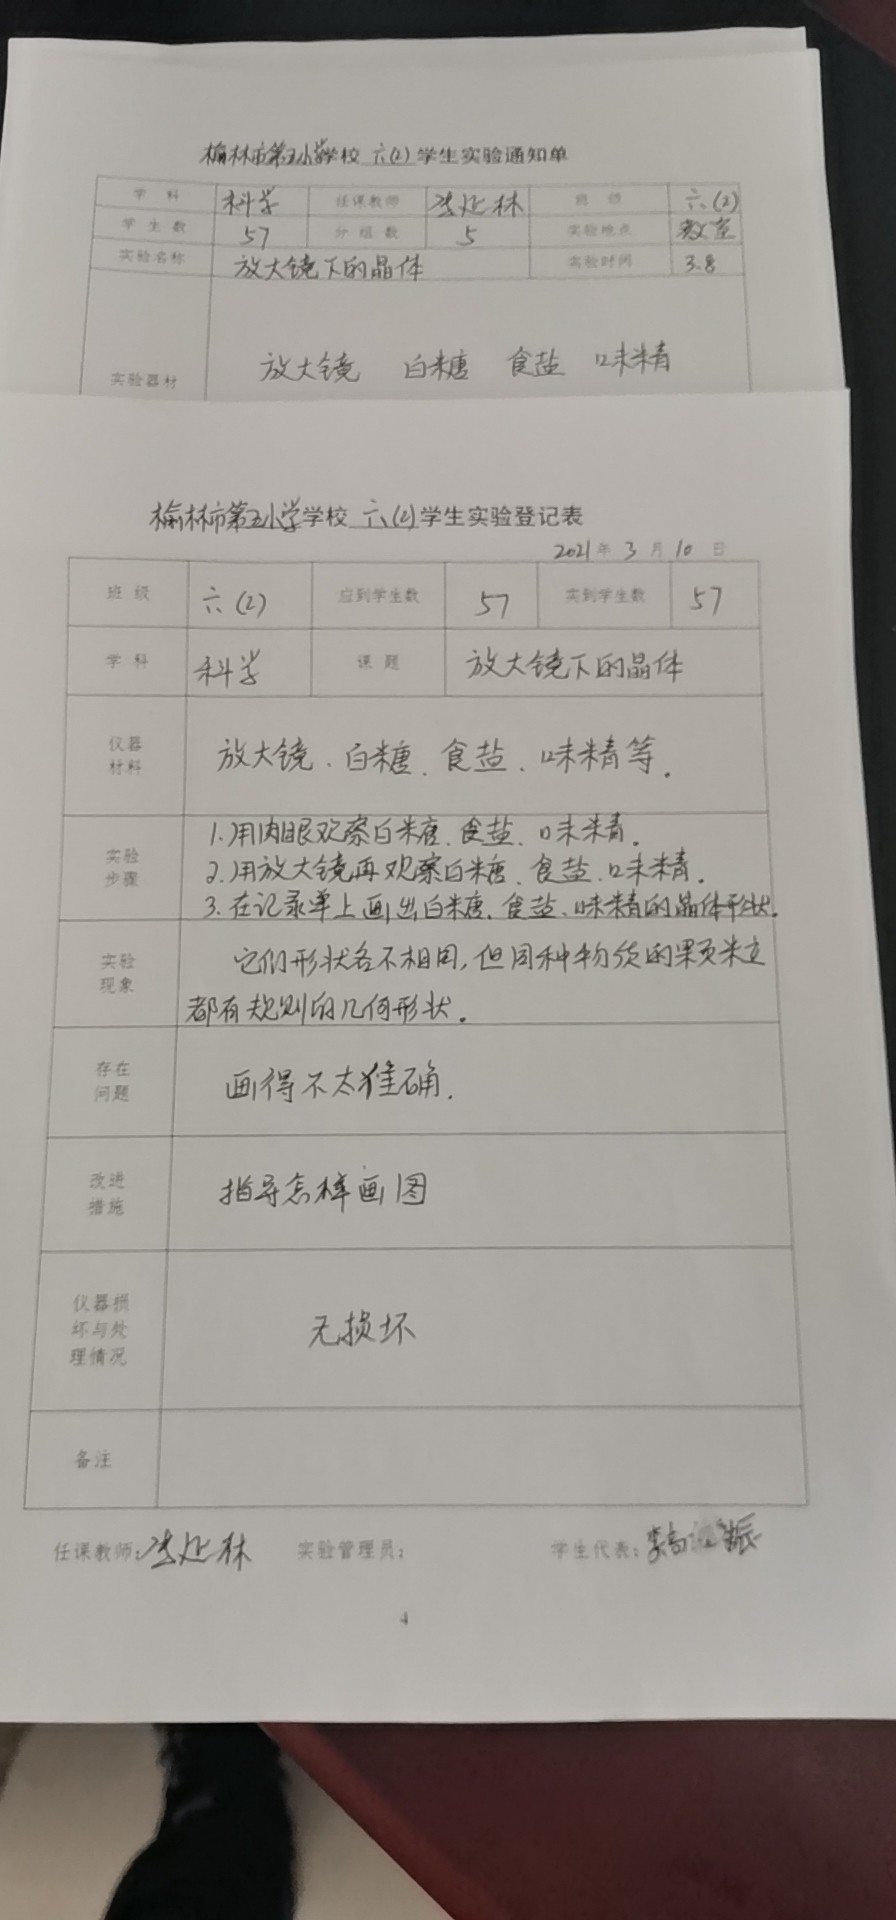 榆林市第五小学学校 六(2) 学生实验通知单
学 科 科学 任课教师 班 级 六(2)
学 生 数 57 分 组 数 5 实验地点 教室
实验名称 放大镜下的晶体 实验时间 3.8
实验器材 放大镜 白糖 食盐 味精
榆林市第五小学学校 六(2) 学生实验登记表
2021年 3 月 10 日
班 级 六(2) 应到学生数 57 实到学生数 57
学 科 科学 课 题 放大镜下的晶体
仪器
材料
放大镜、白糖、食盐、味精等。
实验
步骤
1.用肉眼观察白糖、食盐、味精。
2.用放大镜再观察白糖、食盐、味精。
3.在记录单上画出白糖、食盐、味精的晶体形状。
实验
现象
它们形状各不相同,但同种物质的颗粒
都有规则的几何形状。
存在
问题
画得不太准确.
改进
措施
指导怎样画图
仪器损
坏与处
理情况
无损坏
备注
任课教师: 实验管理员: 学生代表:
4